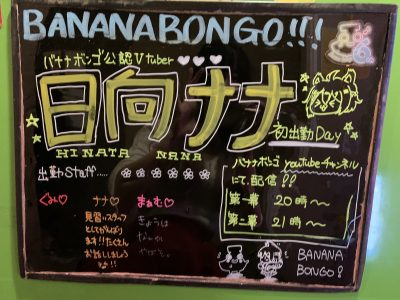 BANANABONGO!!!
バナナボンゴ公認Vtuber♡♡♡
日向ナナ
HINATA NANA
初出勤Day
出勤Staff.....
バナナボンゴ youtubeチャンネル
にて、配信!!
第一幕 20時〜
第二幕 21時〜
ナナ♡
見習いスタッフ
としてがんばり
ます!!たくさん
お話ししましょう
まぁむ♡
きょうは
なんか
やばそ。
BANANA
BONGO!